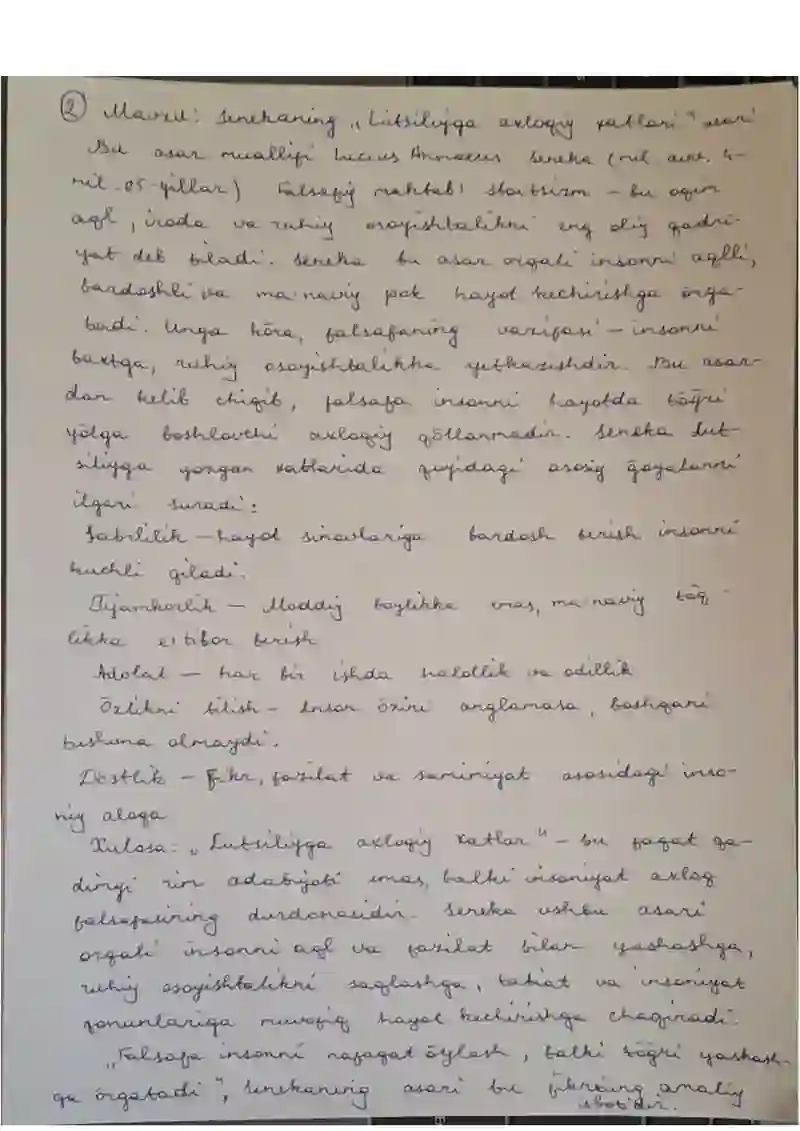 ② Mavzu: Senekaning „Lutsiliyga axloqiy xatlari" asari
Bu asar muallifi Lucius Annaeus Seneka (mil. avv. 4-
mil. 65-yillar) Falsafiy maktabi stoitsizm – bu oqim
aql, iroda va ruhiy osoyishtalikni eng oliy qadri-
yat deb biladi. Seneka bu asar orqali insonni aqlli,
bardoshli va ma'naviy pok hayot kechirishga õrga-
tadi. Unga kõra, falsafaning vazifasi – insonni
baxtga, ruhiy osoyishtalikka yetkazishdir. Bu asar-
dan kelib chiqib, falsafa insonni hayotda tõg̃ri
yõlga boshlovchi axloqiy qõllanmadir. Seneka Lut-
siliyga yozgan xatlarida quyidagi asosiy g̃oyalarni
ilgari suradi:
Sabrlilik – hayot sinovlariga bardosh berish insonni
kuchli qiladi.
Tijamkorlik – Moddiy boylikka emas, ma'naviy tõq-
likka e'tibor berish
Adolat – har bir ishda halollik va odillik
Õzlikni bilish – Inson õzini anglamasa, boshqani
tushuna olmaydi.
Dõstlik – Fikr, fazilat va samimiyat asosidagi inso-
niy aloqa
Xulosa: „Lutsiliyga axloqiy xatlar" – bu faqat qa-
dimgi rim adabiyoti emas, balki insoniyat axloq
falsafasining durdonasidir. Seneka ushbu asari
orqali insonni aql va fazilat bilan yashashga,
ruhiy osoyishtalikni saqlashga, tabiat va insoniyat
qonunlariga muvofiq hayot kechirishga chaqiradi.
„Falsafa insonni nafaqat õylash, balki tõg̃ri yashash-
ga õrgatadi", Senekaning asari bu fikrning amaliy
isbotidir.